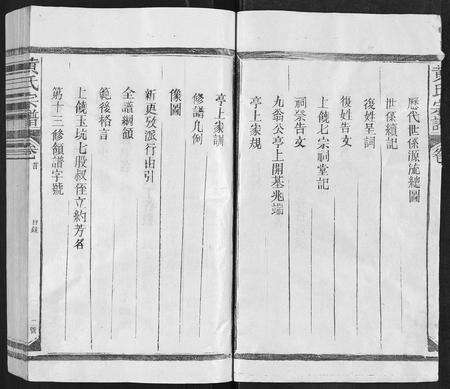 歷代世系源流總圖
世係續記
復姓呈詞
復姓告文
上饒七宗祠堂記
祠祭告文
九翁公亭上開基兆端
亭上家規
亭上家訓
修譜凡例
像圖
新更攷派行由引
全譜綱領
範後格言
上饒玉坑七股叔侄立納芳名
第十三修領譜字號
黃氏宗譜
卷首
目錄
一號
黃氏宗譜